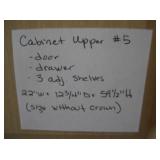 Cabinet Upper #5
- door
- drawer
- 3 adj shelves
22"W x 12 3/4"D x 59 1/2"H
(size without crown)